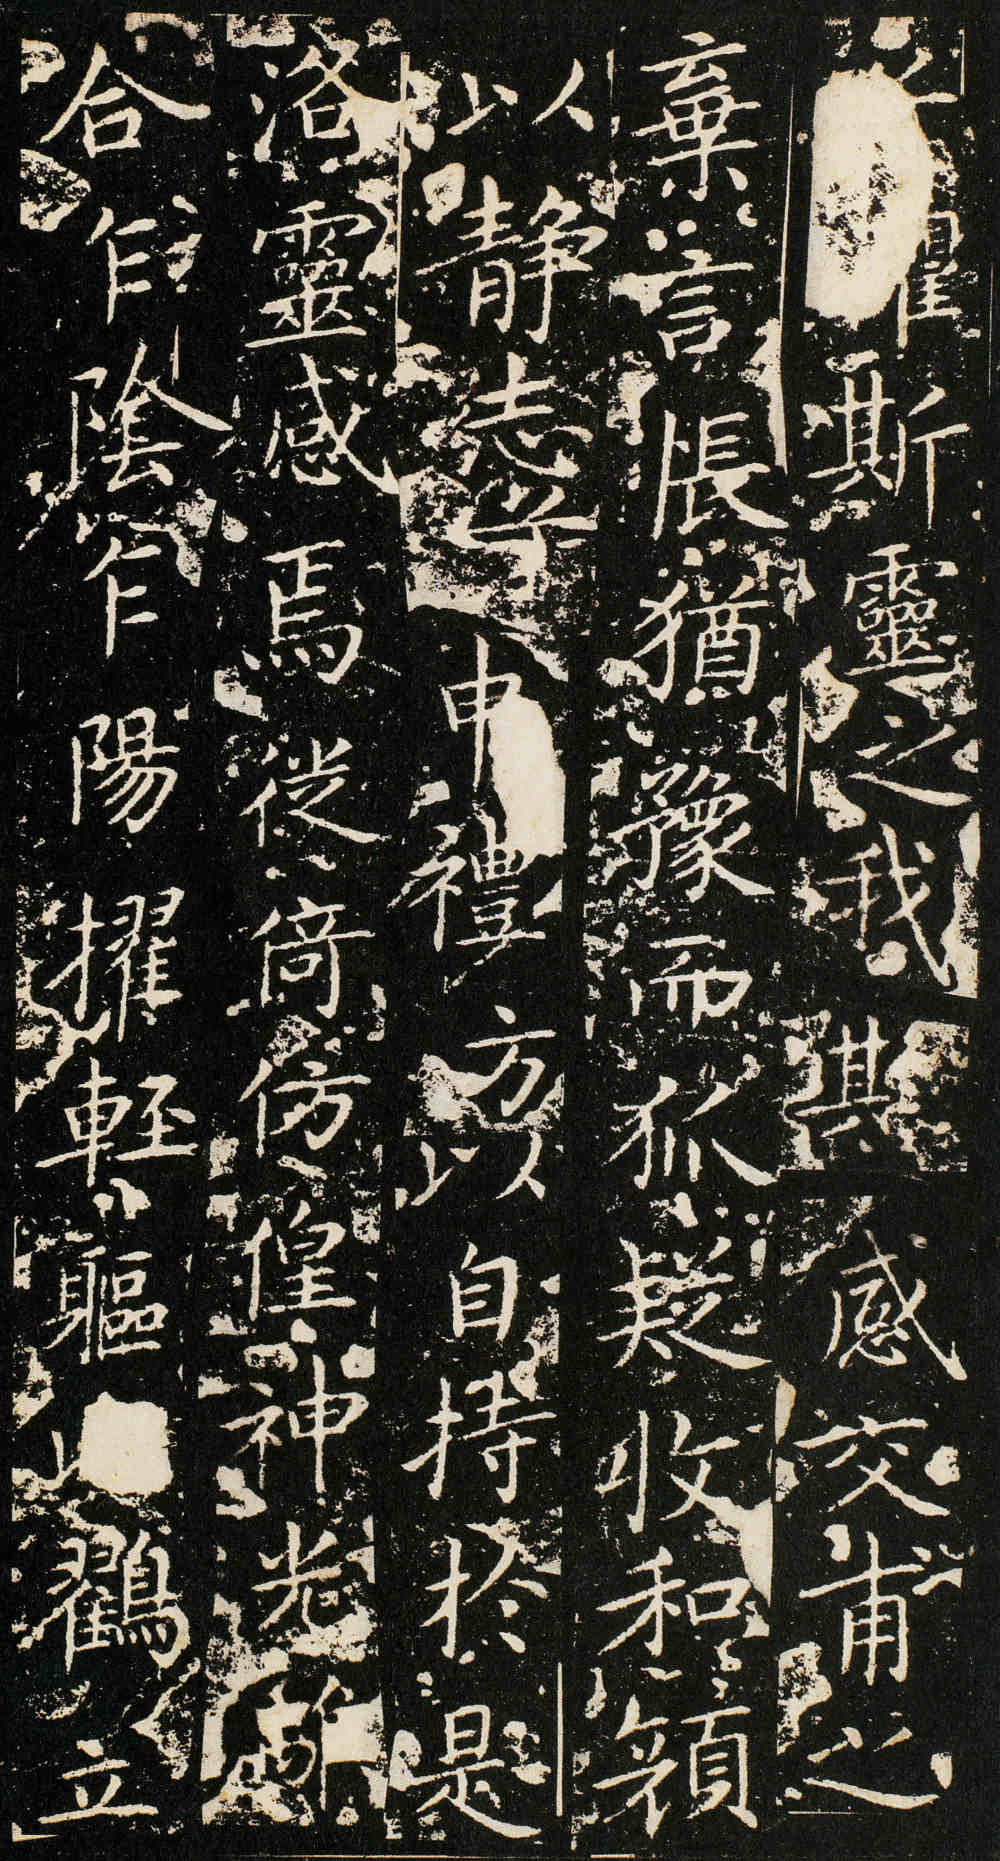 懼斯靈之我欺感交甫之
棄言悵猶豫而狐疑收和顏
以靜志兮申禮方以自持於是
洛靈感焉徙倚仿偟神光
合乍陰乍陽擢輕軀以鶴立